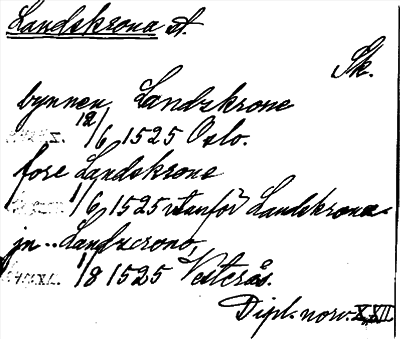 Landskrona st.
Sk.
bynnen Landzkrone
12/6 1525 Oslo.
fore Landskrone
1/6 1525 utanför Landskrona
jn .. Landzcrono,
1/8 1525 Vesterås.
Dipl. norv. XXII